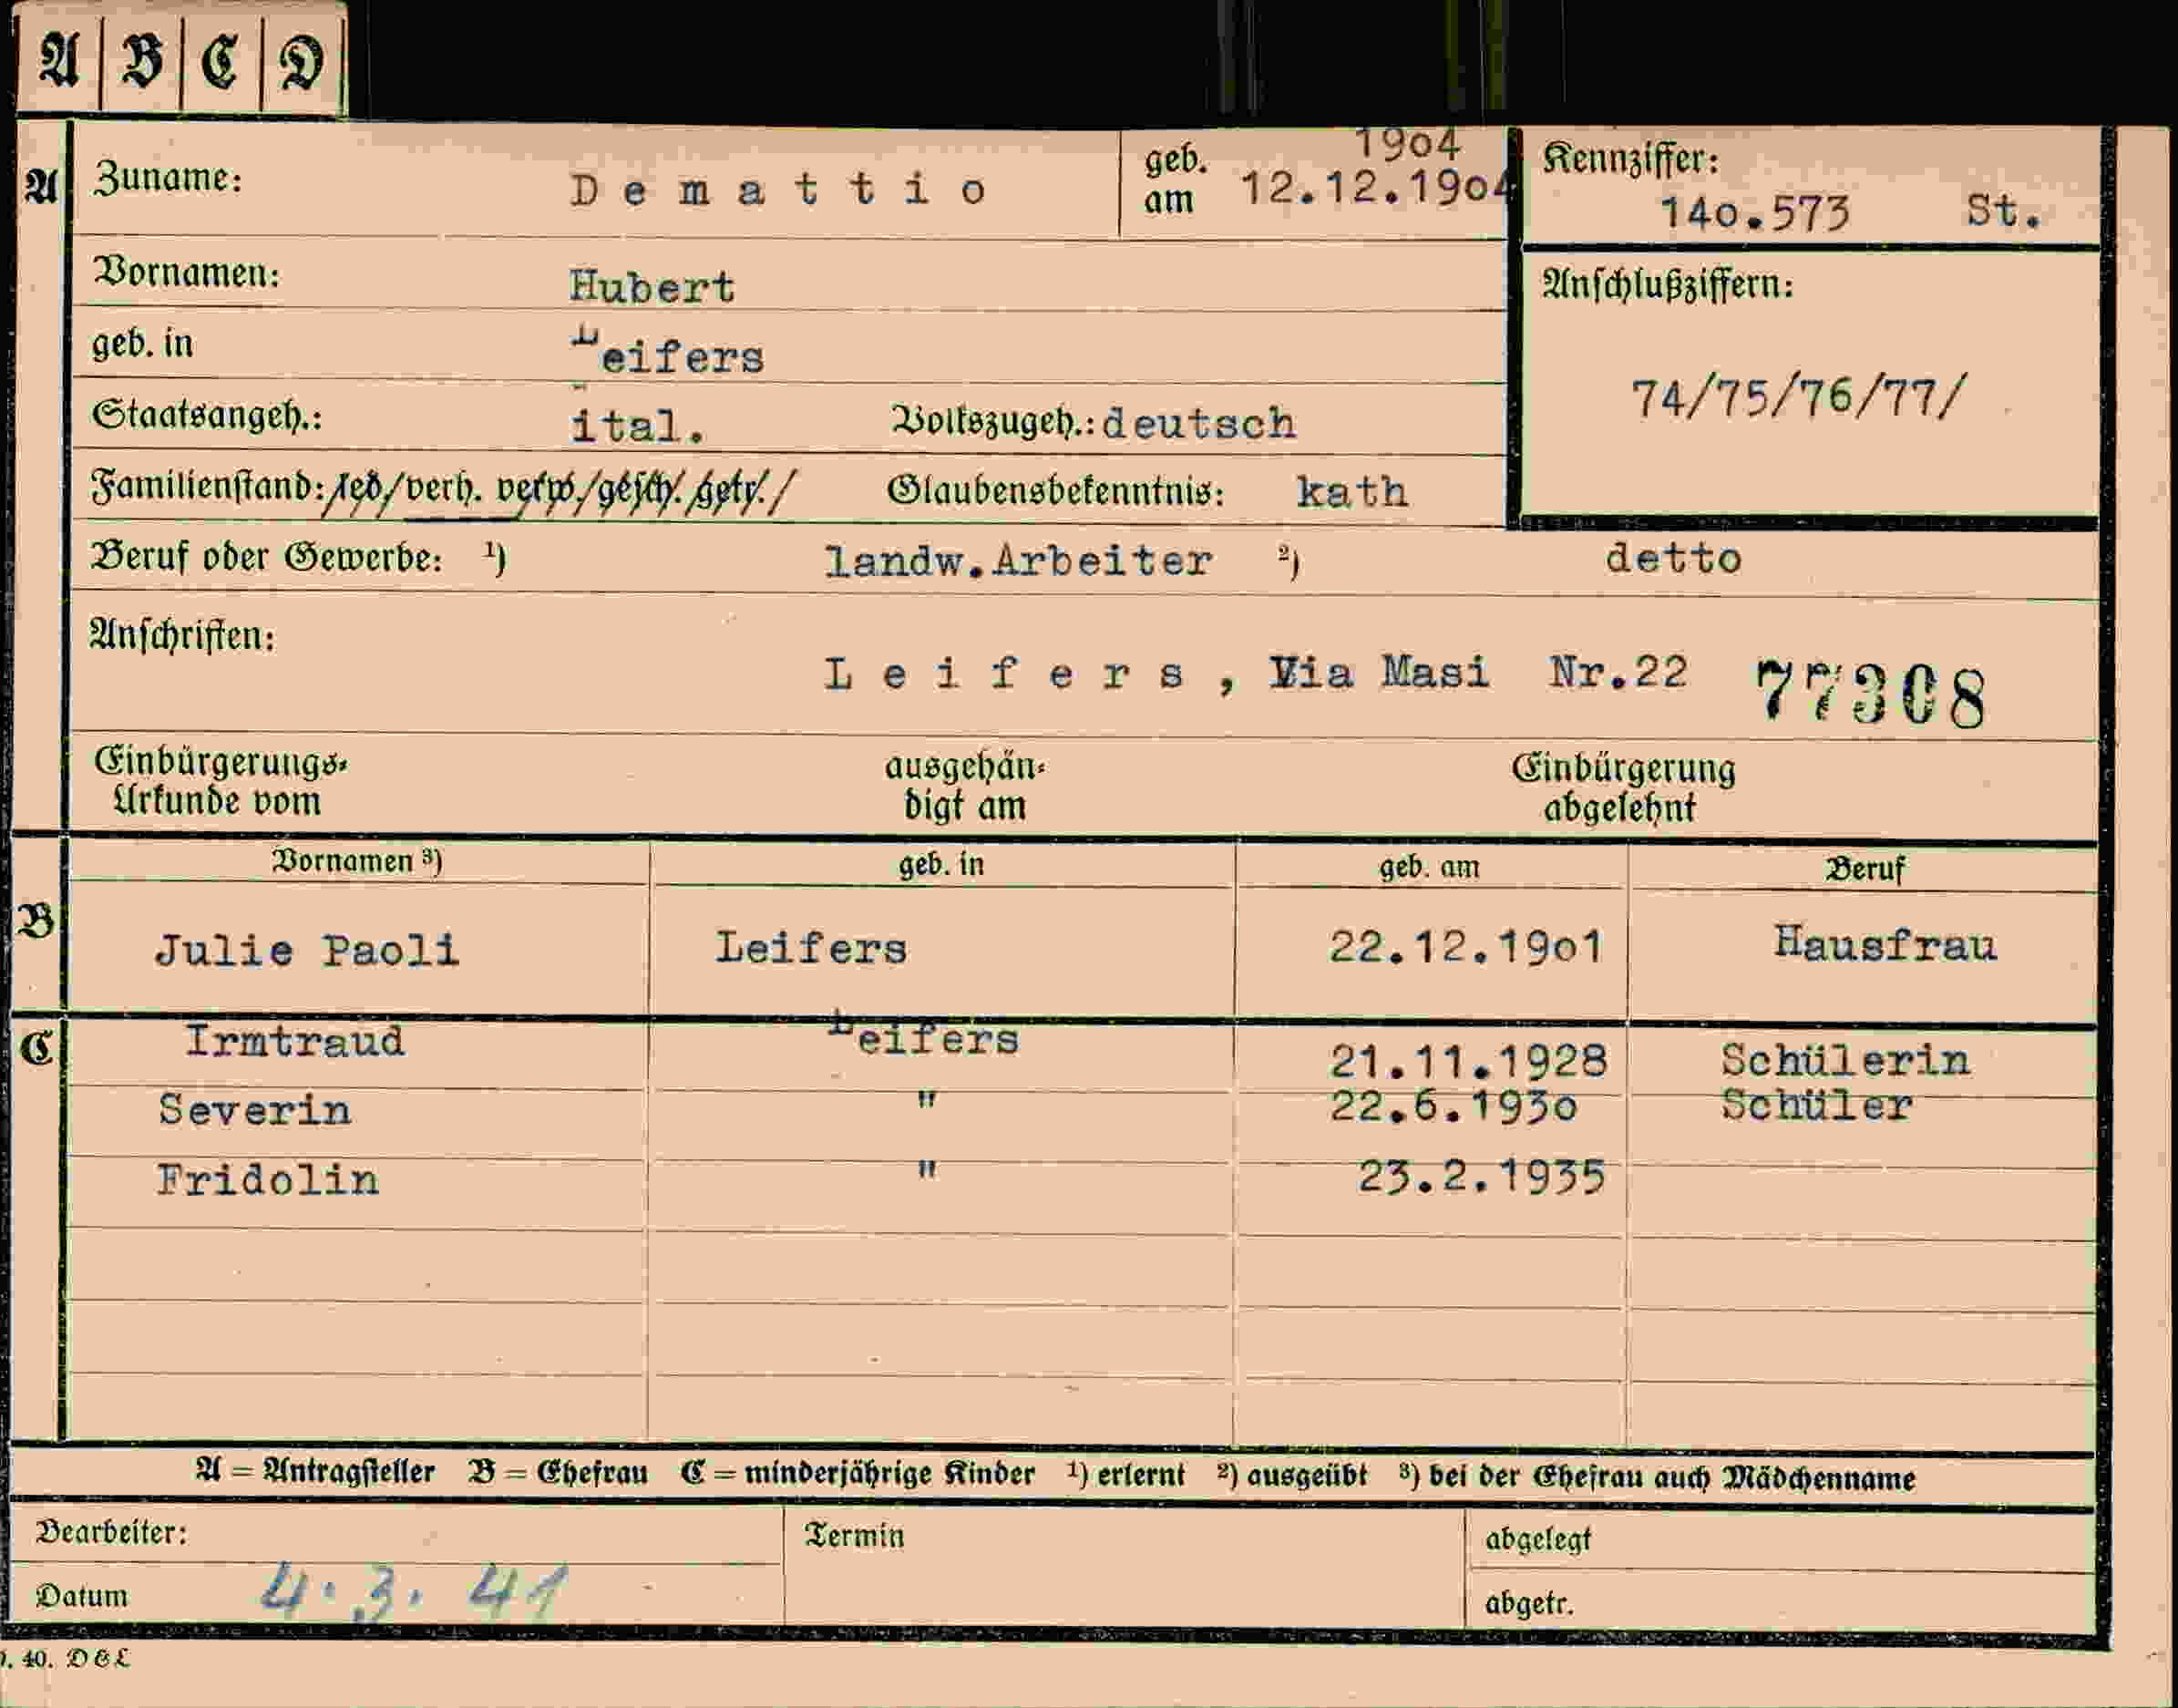 A B C D
A Zuname: Demattio geb. am 1904 12.12.1904 Kennziffer: 140.573 St.
Vornamen: Hubert Anschlußziffern:
geb. in Leifers
74/75/76/77/
Staatsangeh.: ital. Volkszugeh.: deutsch
Familienstand: led/verh. verw./gesch./getr./ Glaubensbekenntnis: kath
Beruf oder Gewerbe: 1) landw.Arbeiter 2) detto
Anschriften:
Leifers, Via Masi Nr.22 77308
Einbürgerungs- ausgehän- Einbürgerung
Urkunde vom digt am abgelehnt
Vornamen 3) geb. in geb. am Beruf
B Julie Paoli Leifers 22.12.1901 Hausfrau
C Irmtraud Leifers 21.11.1928 Schülerin
Severin " 22.6.1930 Schüler
Fridolin " 23.2.1935
A = Antragsteller B = Ehefrau C = minderjährige Kinder 1) erlernt 2) ausgeübt 3) bei der Ehefrau auch Mädchenname
Bearbeiter: Termin abgelegt
Datum 4.3.41 abgetr.
. 40. D&L